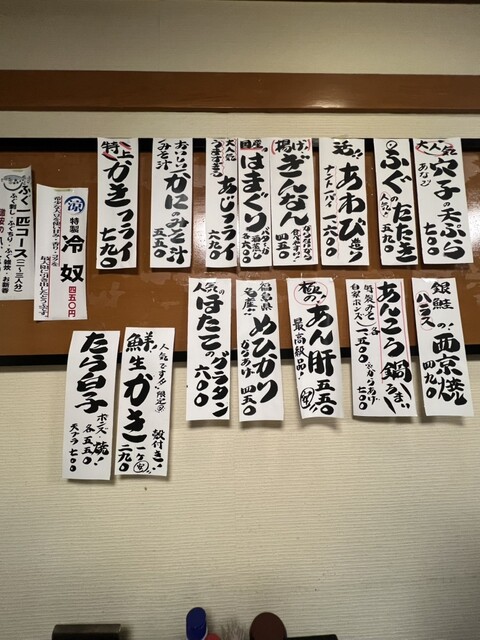 大人気
穴子の天ぷら
あなご
七〇〇
ふぐのたたき
人気!!
五九〇
活!!
あわび造り
ナント一パイ
一六〇〇
揚げ
ぎんなん
四五〇
国産の
はまぐり
各六〇〇
大人気
あじフライ
五九〇
おいしい
みそ汁
かにのみそ汁
五五〇
特上
かきフライ
七九〇
特製
冷奴
四五〇円
ふぐ一匹コース(二〜三人前)
ふぐ刺・ふぐちり・ふぐ雑炊・お新香
銀鮭
ハラス
の!
西京焼
四九〇
あんころ鍋
うまい
特製みそ
自家ポンズ
一五〇〇
からあげ
七〇〇
極の!
あん肝
五五〇
最高級品!
福島県
名産!!
めひかり
からあげ
四五〇
人気の
ほたての
グラタン
六〇〇
人気です!!
限定
鮮!
生がき
殻付き!!
一ケ
二九〇
たら白子
ポンズ・焼!
各五五〇
天プラ
七〇〇